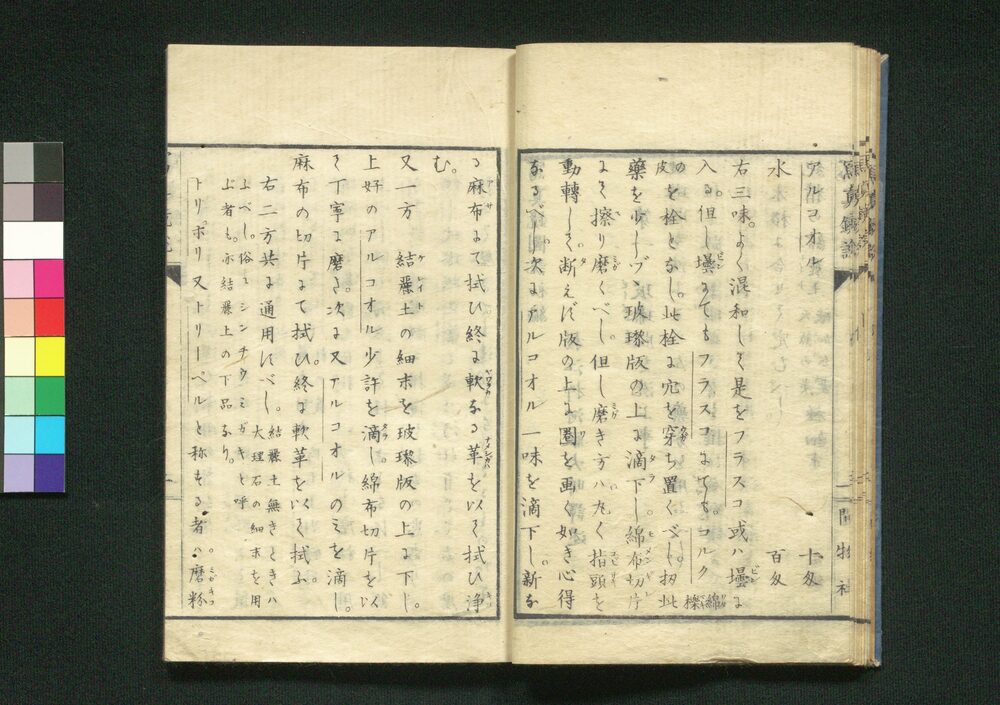 アルコオル 十匁
水 百匁
右三味。よく混和して是をフラスコ或ハ壜に
入る。但し壜にてもフラスコにてもコルク綿櫟
の皮を栓となし。此栓に穴を穿ち置くべし。扨此
藥を少しヅヽ玻瓈版の上に滴下し綿布切片
にて擦り磨くべし。但し磨き方ハ丸く指頭を
動轉して断えず版の上に圏を画く如き心得
なるべし。次にアルコオル一味を滴下し。新な
る麻布にて拭ひ終に軟なる革を以て拭ひ浄
む。
又一方 結麗土の細末を玻瓈版の上に下し。
上好のアルコオル少許を滴し綿布切片を以
て丁寧に磨き。次に又アルコオルのミを滴し。
麻布の切片にて拭ひ。終に軟革を以て拭ふ。
右二方共に通用すべし。結麗土無きときハ
大理石の細末を用
ふべし。俗にシンチウミガキと呼
ぶ者も。亦結麗土の下品なり。
トリポリ又トリーペルと称する者ハ磨粉